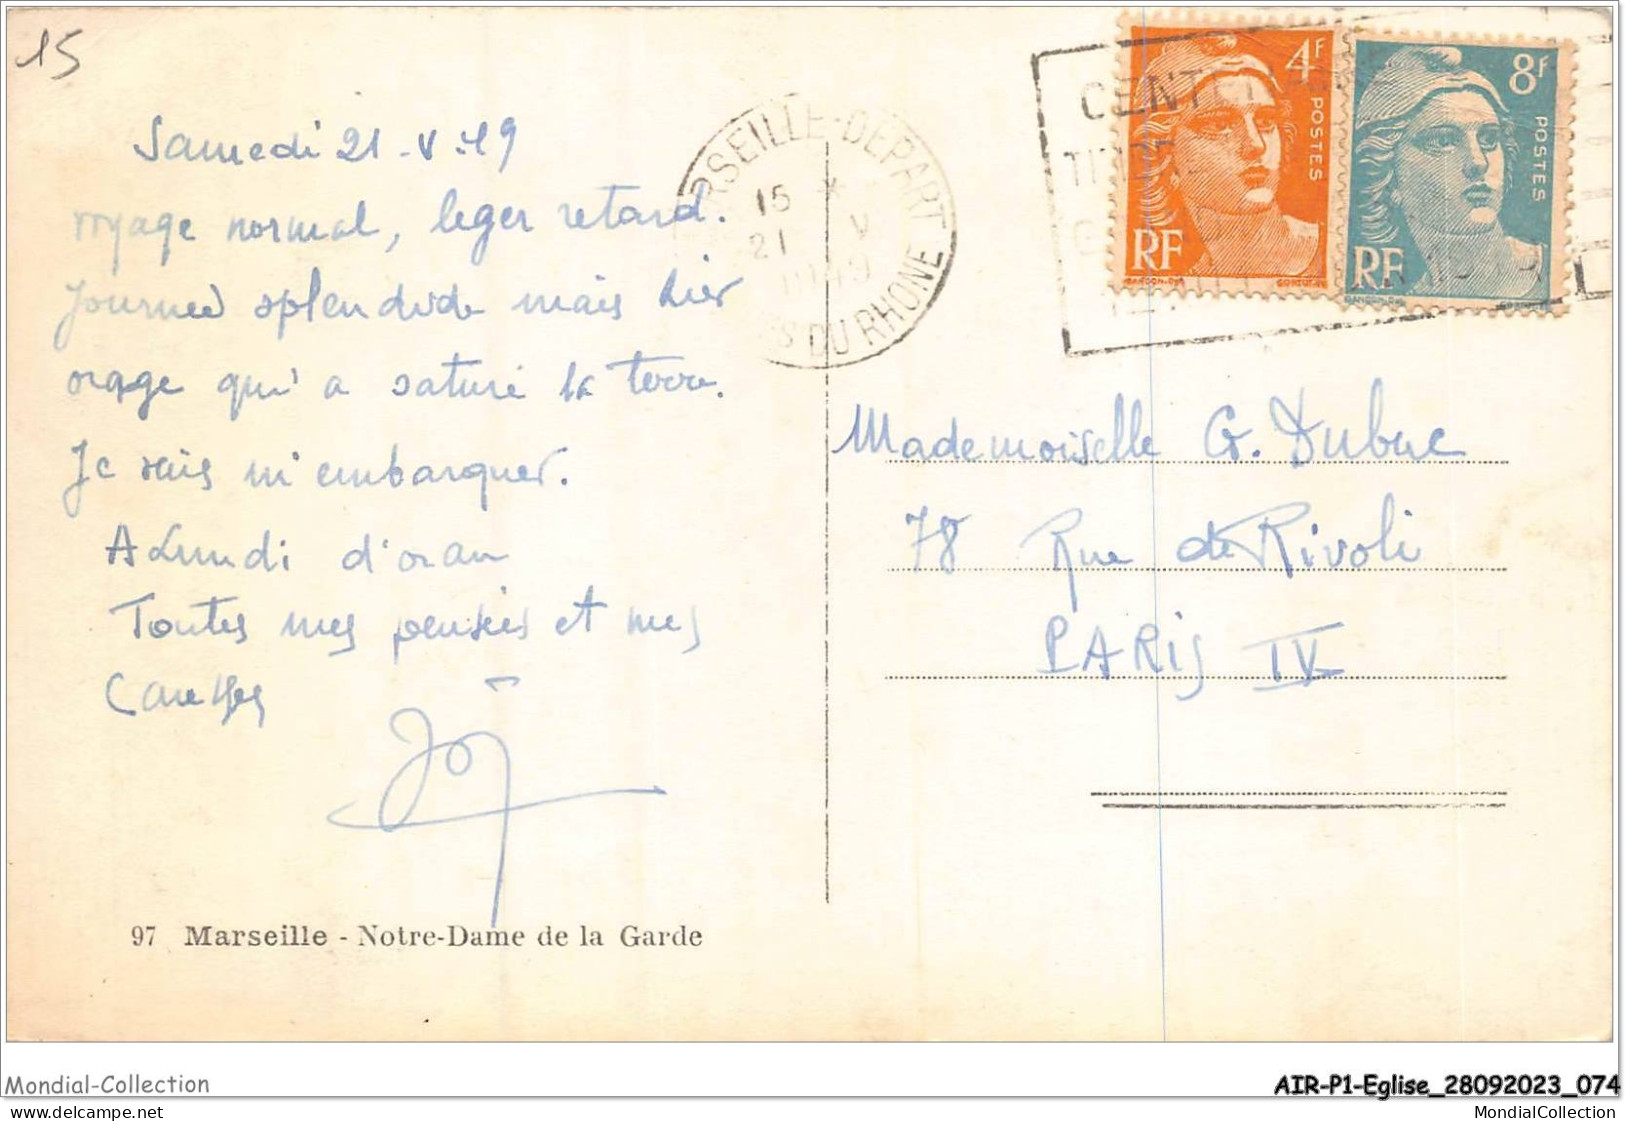 15
Samedi 21-V-49
voyage normal, leger retard.
Journée splendide mais hier
orage qui a saturé la terre.
Je vais m'embarquer.
A Lundi d'oran
Toutes mes pensées et mes
Caresses
97 Marseille - Notre-Dame de la Garde
RSEILLE-DEPART
15 *
21 V
1949
DU RHONE
CENTE
TIMBRE
4F
POSTES
RF
GANDON-DEL
CORTOT-SC
8F
POSTES
RF
GANDON-DEL
Mademoiselle G. Dubuc
78 Rue de Rivoli
PARIS IV
Mondial-Collection
delcampe.net
AIR-P1-Eglise_28092023_074
MondialCollection